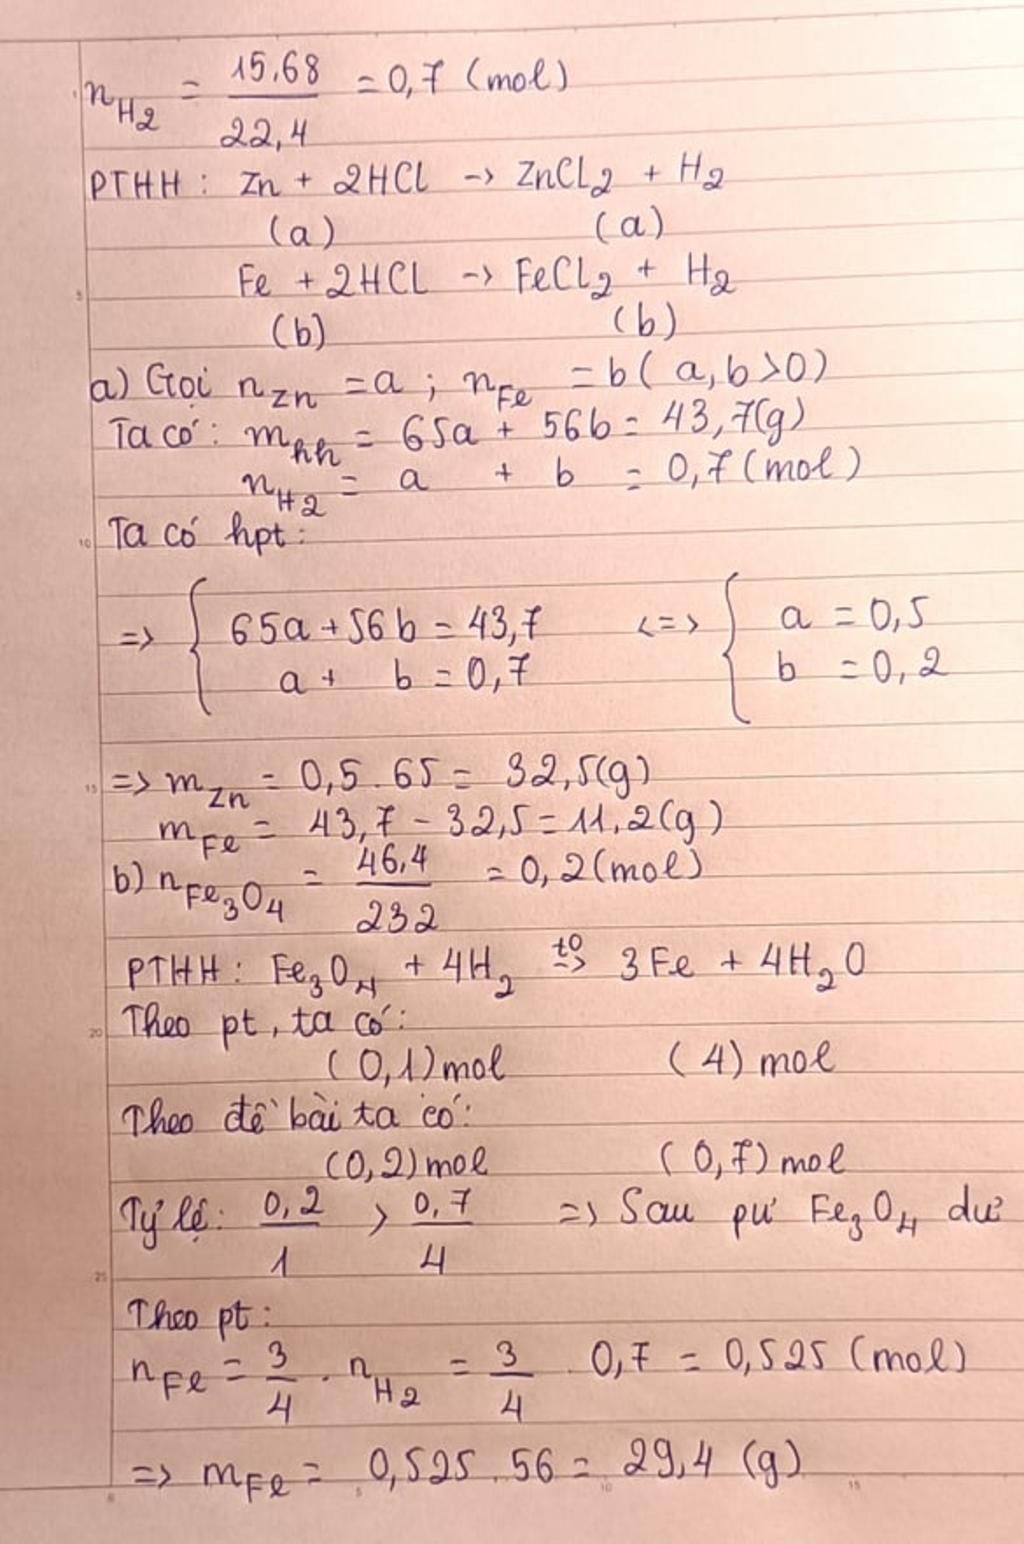 n_H2 = 15,68/22,4 = 0,7 (mol)
PTHH: Zn + 2HCl -> ZnCl2 + H2
(a) (a)
Fe + 2HCl -> FeCl2 + H2
(b) (b)
a) Gọi n_Zn = a ; n_Fe = b ( a, b > 0)
Ta có: m_hh = 65a + 56b = 43,7(g)
n_H2 = a + b = 0,7 (mol)
Ta có hpt:
=> { 65a + 56b = 43,7 <=> { a = 0,5
a + b = 0,7 b = 0,2
=> m_Zn = 0,5 . 65 = 32,5(g)
m_Fe = 43,7 - 32,5 = 11,2(g)
b) n_Fe3O4 = 46,4/232 = 0,2 (mol)
PTHH: Fe3O4 + 4H2 t° -> 3Fe + 4H2O
Theo pt, ta có:
(0,1) mol (4) mol
Theo đề bài ta có:
(0,2) mol (0,7) mol
Tỷ lệ: 0,2/1 > 0,7/4 => Sau pư Fe3O4 dư
Theo pt:
n_Fe = 3/4 . n_H2 = 3/4 . 0,7 = 0,525 (mol)
=> m_Fe = 0,525 . 56 = 29,4 (g)